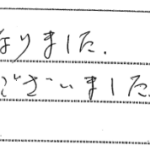 なりました.
ございました.